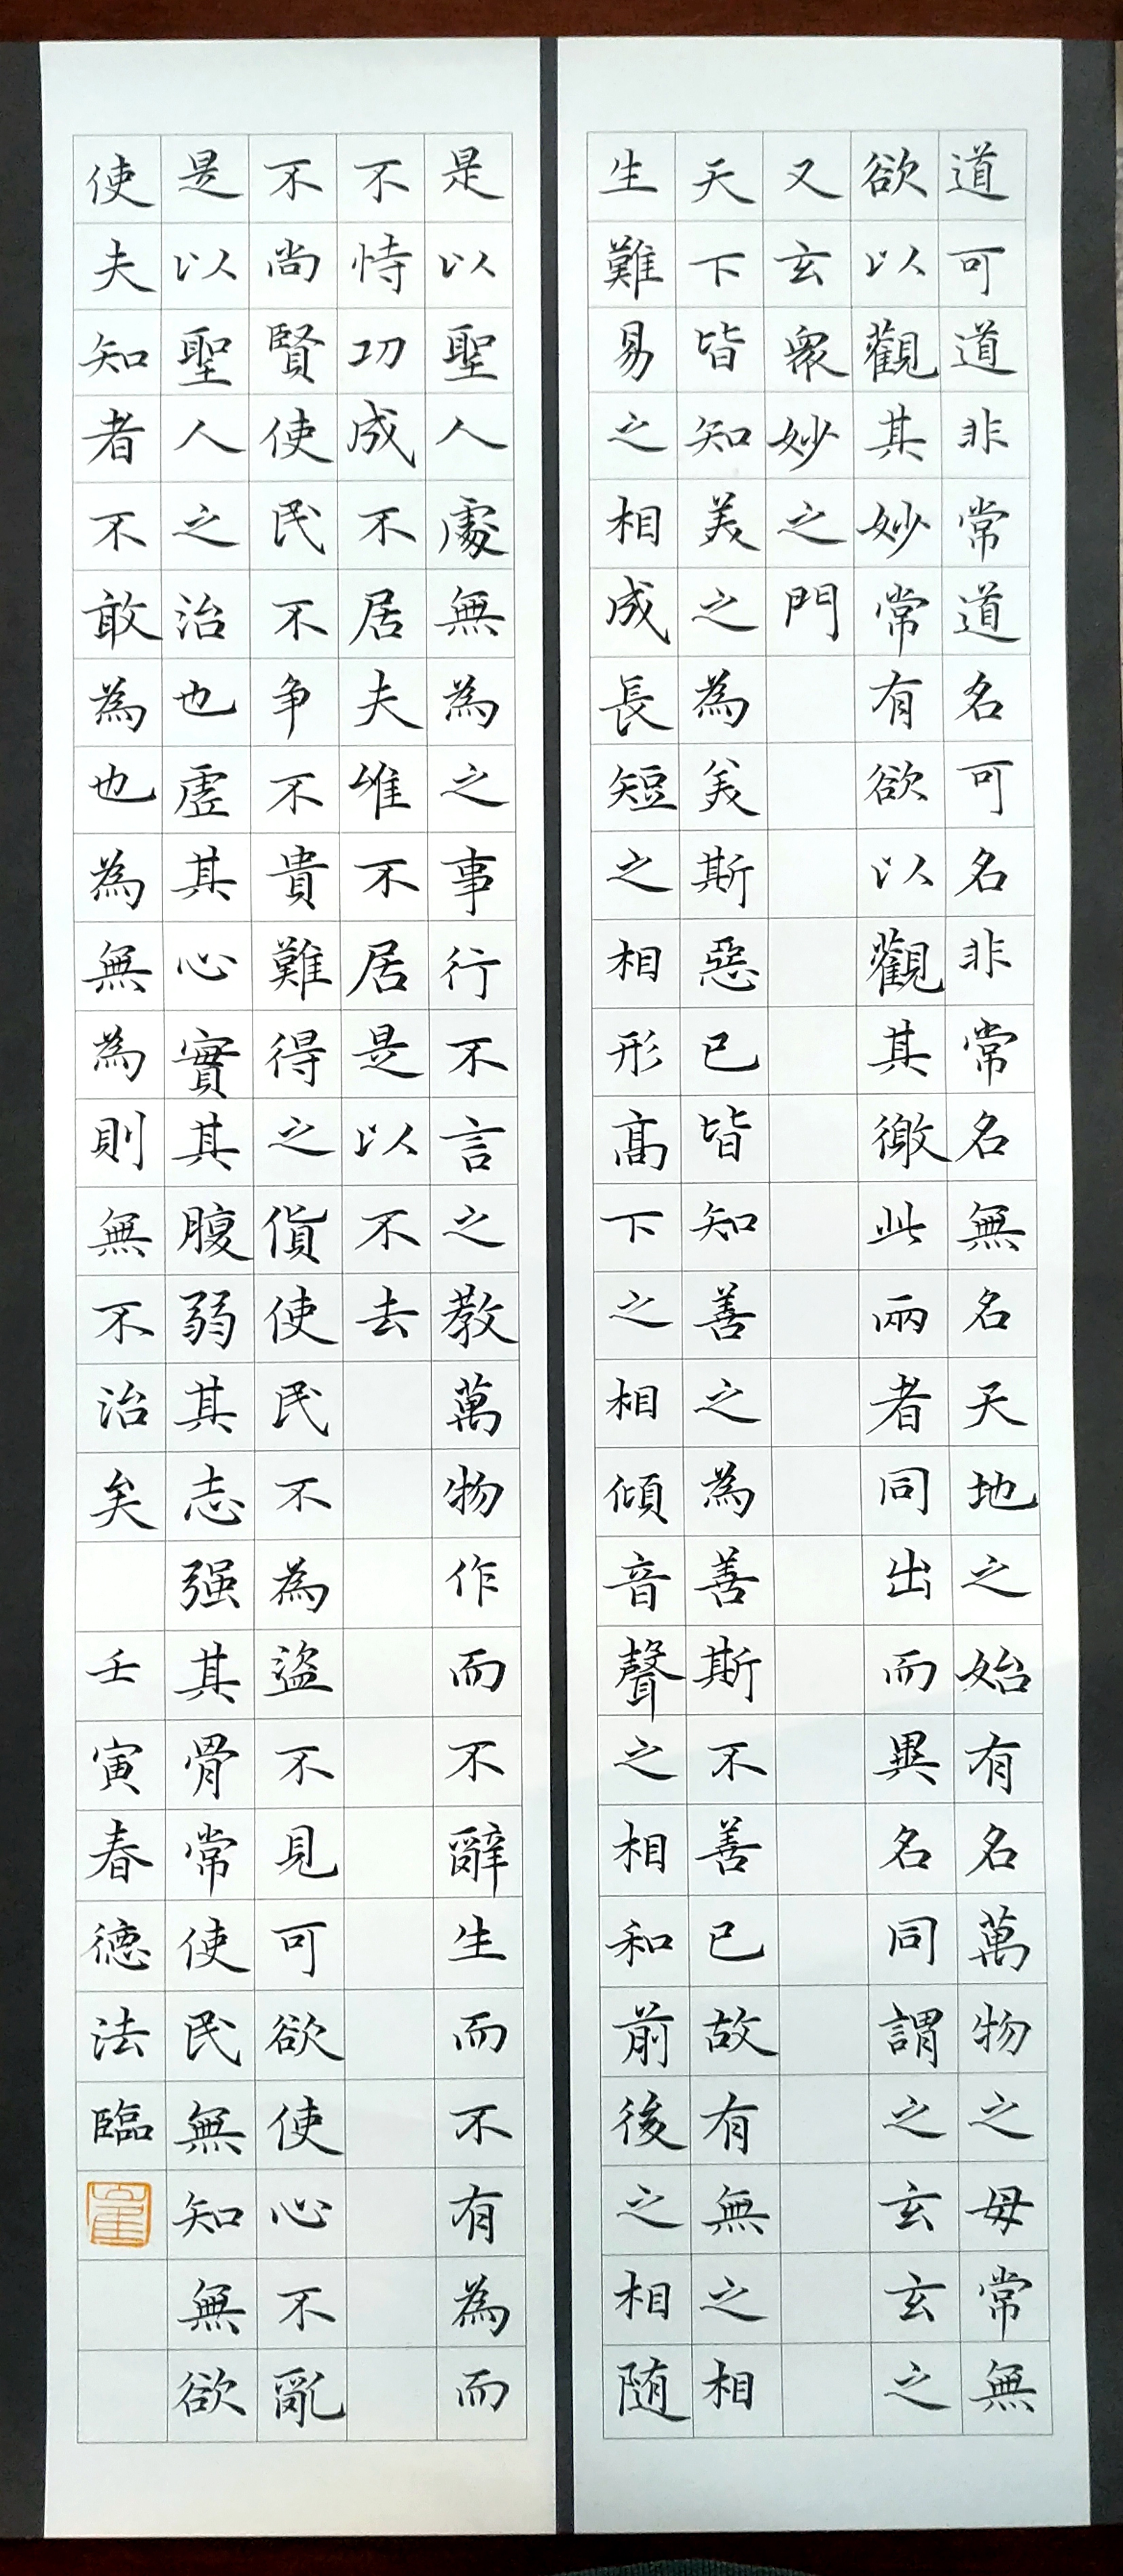 道可道非常道名可名非常名無名天地之始有名萬物之母常無
欲以觀其妙常有欲以觀其徼此兩者同出而異名同謂之玄玄之
又玄衆妙之門
天下皆知美之為美斯惡已皆知善之為善斯不善已故有無之相
生難易之相成長短之相形高下之相傾音聲之相和前後之相随
是以聖人處無為之事行不言之教萬物作而不辭生而不有為而
不恃功成不居夫唯不居是以不去
不尚賢使民不争不貴難得之貨使民不為盜不見可欲使心不亂
是以聖人之治也虛其心實其腹弱其志强其骨常使民無知無欲
使夫知者不敢為也為無為則無不治矣 壬寅春德法臨